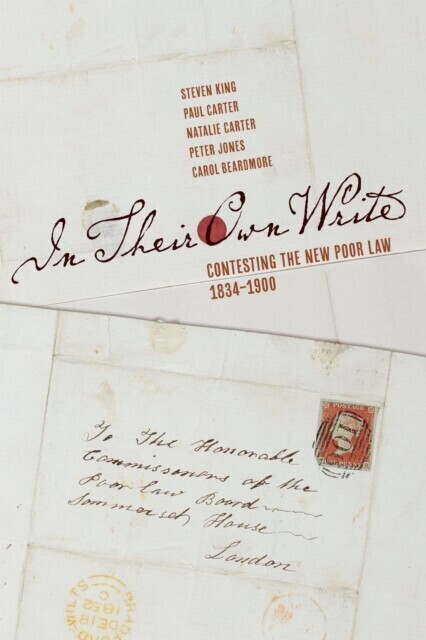 STEVEN KING
PAUL CARTER
NATALIE CARTER
PETER JONES
CAROL BEARDMORE
In Their Own Write
CONTESTING THE NEW POOR LAW
1834–1900
To The Honorable
Commissoners of the
Poor law Board
Sommerset House
London
BRADFORD WILTS
C
DE 18
1852